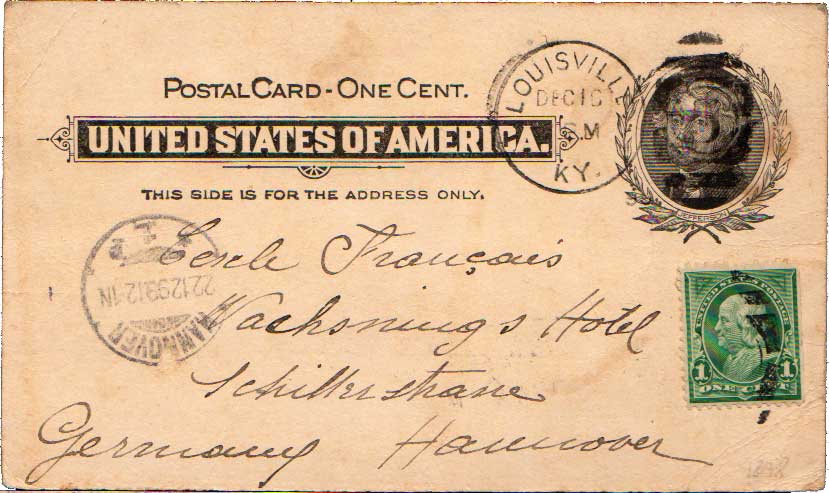 POSTAL CARD - ONE CENT.
UNITED STATES OF AMERICA.
THIS SIDE IS FOR THE ADDRESS ONLY.
LOUISVILLE
DEC 1
M
KY.
JEFFERSON
Cercle Français
Hotel
Germany Hannover
HANNOVER
22 12 99 12-1N
UNITED STATES POSTAGE
1 1
ONE CENT